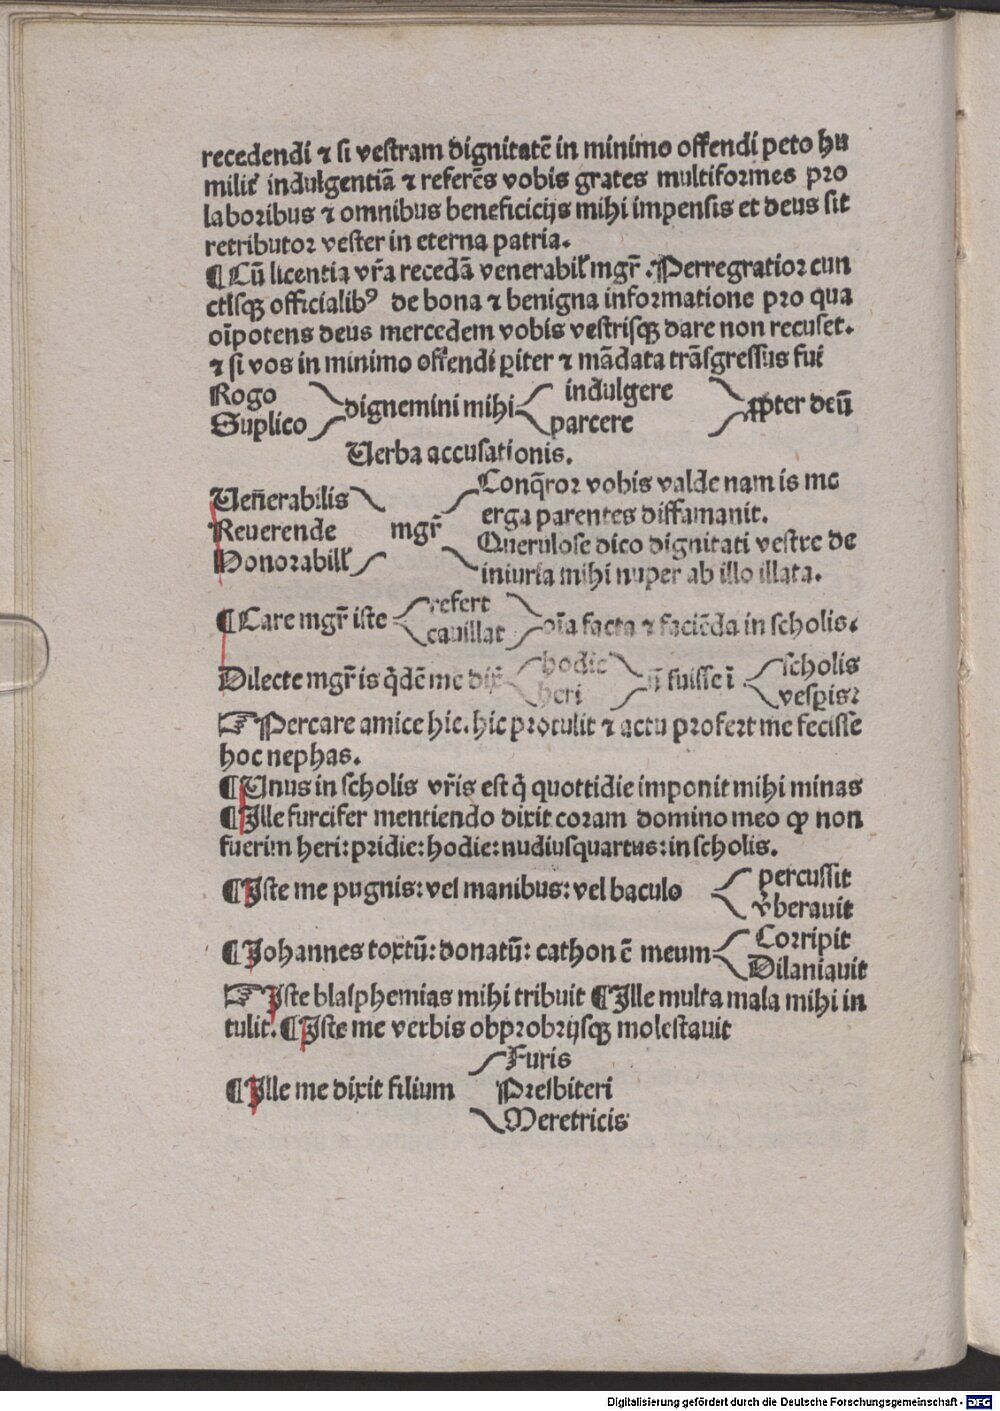 recedendi ⁊ si vestram dignitatē in minimo offendi peto hu
milit᷑ indulgentiā ⁊ referēs vobis grates multiformes pro
laboribus ⁊ omnibus beneficicijs mihi impensis et deus sit
retributor vester in eterna patria.
¶ Cū licentia vr̄a recedā venerabil᷑ mgr̄. Perregratior cun
ctisqꝫ officialibꝰ de bona ⁊ benigna informatione pro qua
oīpotens deus mercedem vobis vestrisqꝫ dare non recuset.
⁊ si vos in minimo offendi ꝑiter ⁊ mādata trāsgressus fui
Rogo
Suplico
dignemini mihi
indulgere
parcere
ꝓpter deū
Uerba accusationis.
Ueñerabilis
Reuerende
Honorabill᷑
mgr̄
Conq̄ror vobis valde nam is me
erga parentes diffamanit.
Querulose dico dignitati vestre de
iniuria mihi nuper ab illo illata.
¶ Care mgr̄ iste
refert
cauillat
oīa facta ⁊ faciēda in scholis.
Dilecte mgr̄ is q̄dē me dix̄
hodie
heri
nō fuisse ī
scholis
vesꝑis:
☞ Percare amice hic. hic protulit ⁊ actu profert me fecisse
hoc nephas.
¶ Unus in scholis vr̄is est q̄ quottidie imponit mihi minas
¶ Ille furcifer mentiendo dixit coram domino meo ꝙ non
fuerim heri: pridie: hodie: nudiusquartus: in scholis.
¶ Iste me pugnis: vel manibus: vel baculo
percussit
v̄berauit
¶ Johannes toxtū: donatū: cathon ē meum
Corripit
Dilaniauit
☞ Iste blasphemias mihi tribuit ¶ Ille multa mala mihi in
tulit. ¶ Iste me verbis obprobrijsqꝫ molestauit
¶ Ille me dixit filium
Furis
Presbiteri
Meretricis
Digitalisierung gefördert durch die Deutsche Forschungsgemeinschaft - DFG